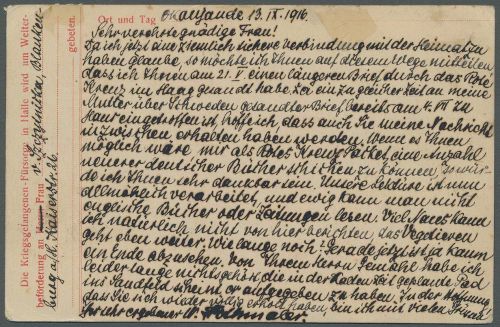 Ort und Tag Okahandja 13. IX. 1916.
Sehr verehrte gnädige Frau!
Da ich jetzt eine ziemlich sichere Verbindung mit der Heimat zu
haben glaube, so möchte ich Ihnen auf diesem Wege mitteilen
dass ich Ihnen am 21. V. einen längeren Brief durch das Rote
Kreuz im Haag gesandt habe. Ein zu gleicher Zeit an meine
Mutter über Schweden gesandter Brief bereits am 4. VII zu
Haus eingetroffen ist, hoffe ich dass auch Sie meine Nachricht
inzwischen erhalten haben werden. Wenn es Ihnen
möglich wäre mir als Rotes Kreuz Packet eine Anzahl
neuerer deutscher Bücher schicken zu können, so wür-
de ich Ihnen sehr dankbar sein. Unsere Lektüre ist nun
allmählich verarbeitet, und ewig kann man nicht
englische Bücher oder Zeitungen lesen. Viel Neues kann
ich natürlich nicht von hier berichten, das Vegetieren
geht eben weiter. Wie lange noch? Gerade jetzt ist ja kaum
ein Ende abzusehen. Von Ihrem Herrn Gemahl habe ich
leider lange nichts gehört, die in der Zeit geplante Pad
ins Sandfeld scheint er aufgegeben zu haben. In der Hoffnung
dass Sie sich wieder völlig erholt haben, bin ich mit vielen Grüssen
Ihr sehr ergebener W.
Die Kriegsgefangenen-Fürsorge in Halle wird um Weiter-
beförderung an Frau gebeten.
v. Frezyminska, Blanken-
burg a/H. Kaiserstr. 26.